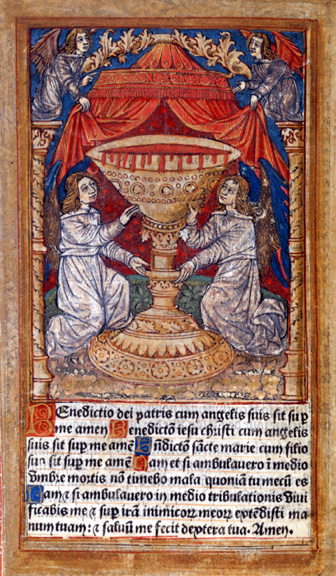 BEnedictio dei patris cum angelis suis sit sup
me amen Benedictõ iesu christi cum angelis
suis sit sup me amẽ Bñdictõ sãcte marie cum filio
suo sit sup me amẽ Nam et si ambulavero ĩ medio
vmbre mortis nõ timebo mala quoniã tu mecũ es
Nam ⁊ si ambulavero in medio tribulationis viui
ficabis me ⁊ sup irã inimicoꝝ meoꝝ extẽdisti ma
num tuam: ⁊ saluũ me fecit dextera tua. Amen.